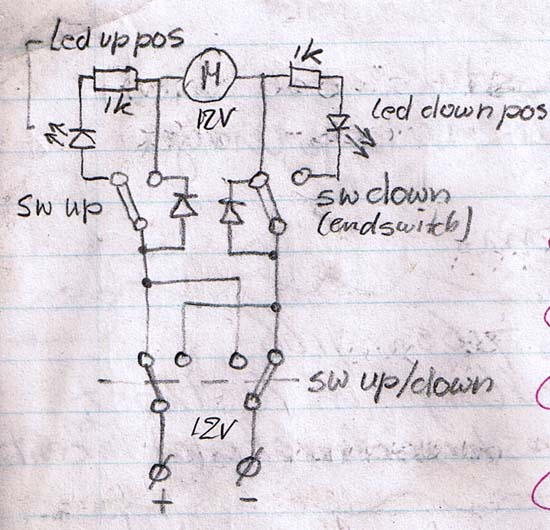 Led up pos
M
1k
1k
12V
Led down pos
sw up
sw down
(endswitch)
sw up/down
12V
+ -